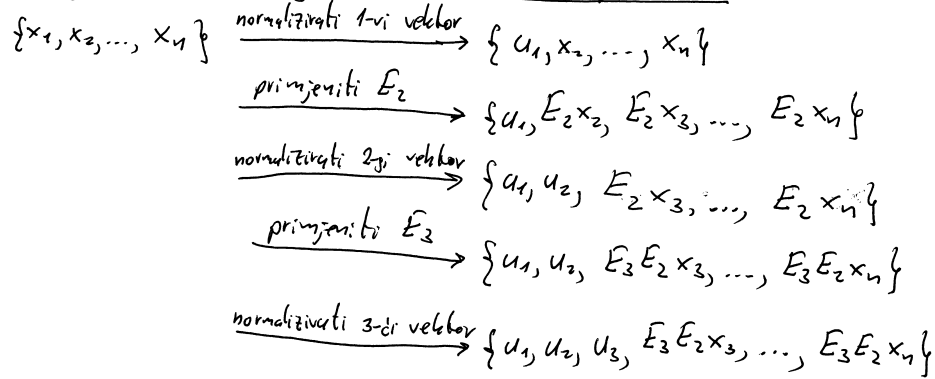 {x₁, x₂, ..., xₙ} normalizirati 1-vi vektor → {u₁, x₂, ..., xₙ}
primjeniti E₂ → {u₁, E₂x₂, E₂x₃, ..., E₂xₙ}
normalizirati 2-gi vektor → {u₁, u₂, E₂x₃, ..., E₂xₙ}
primjeniti E₃ → {u₁, u₂, E₃E₂x₃, ..., E₃E₂xₙ}
normalizirati 3-ći vektor → {u₁, u₂, u₃, E₃E₂x₃, ..., E₃E₂xₙ}